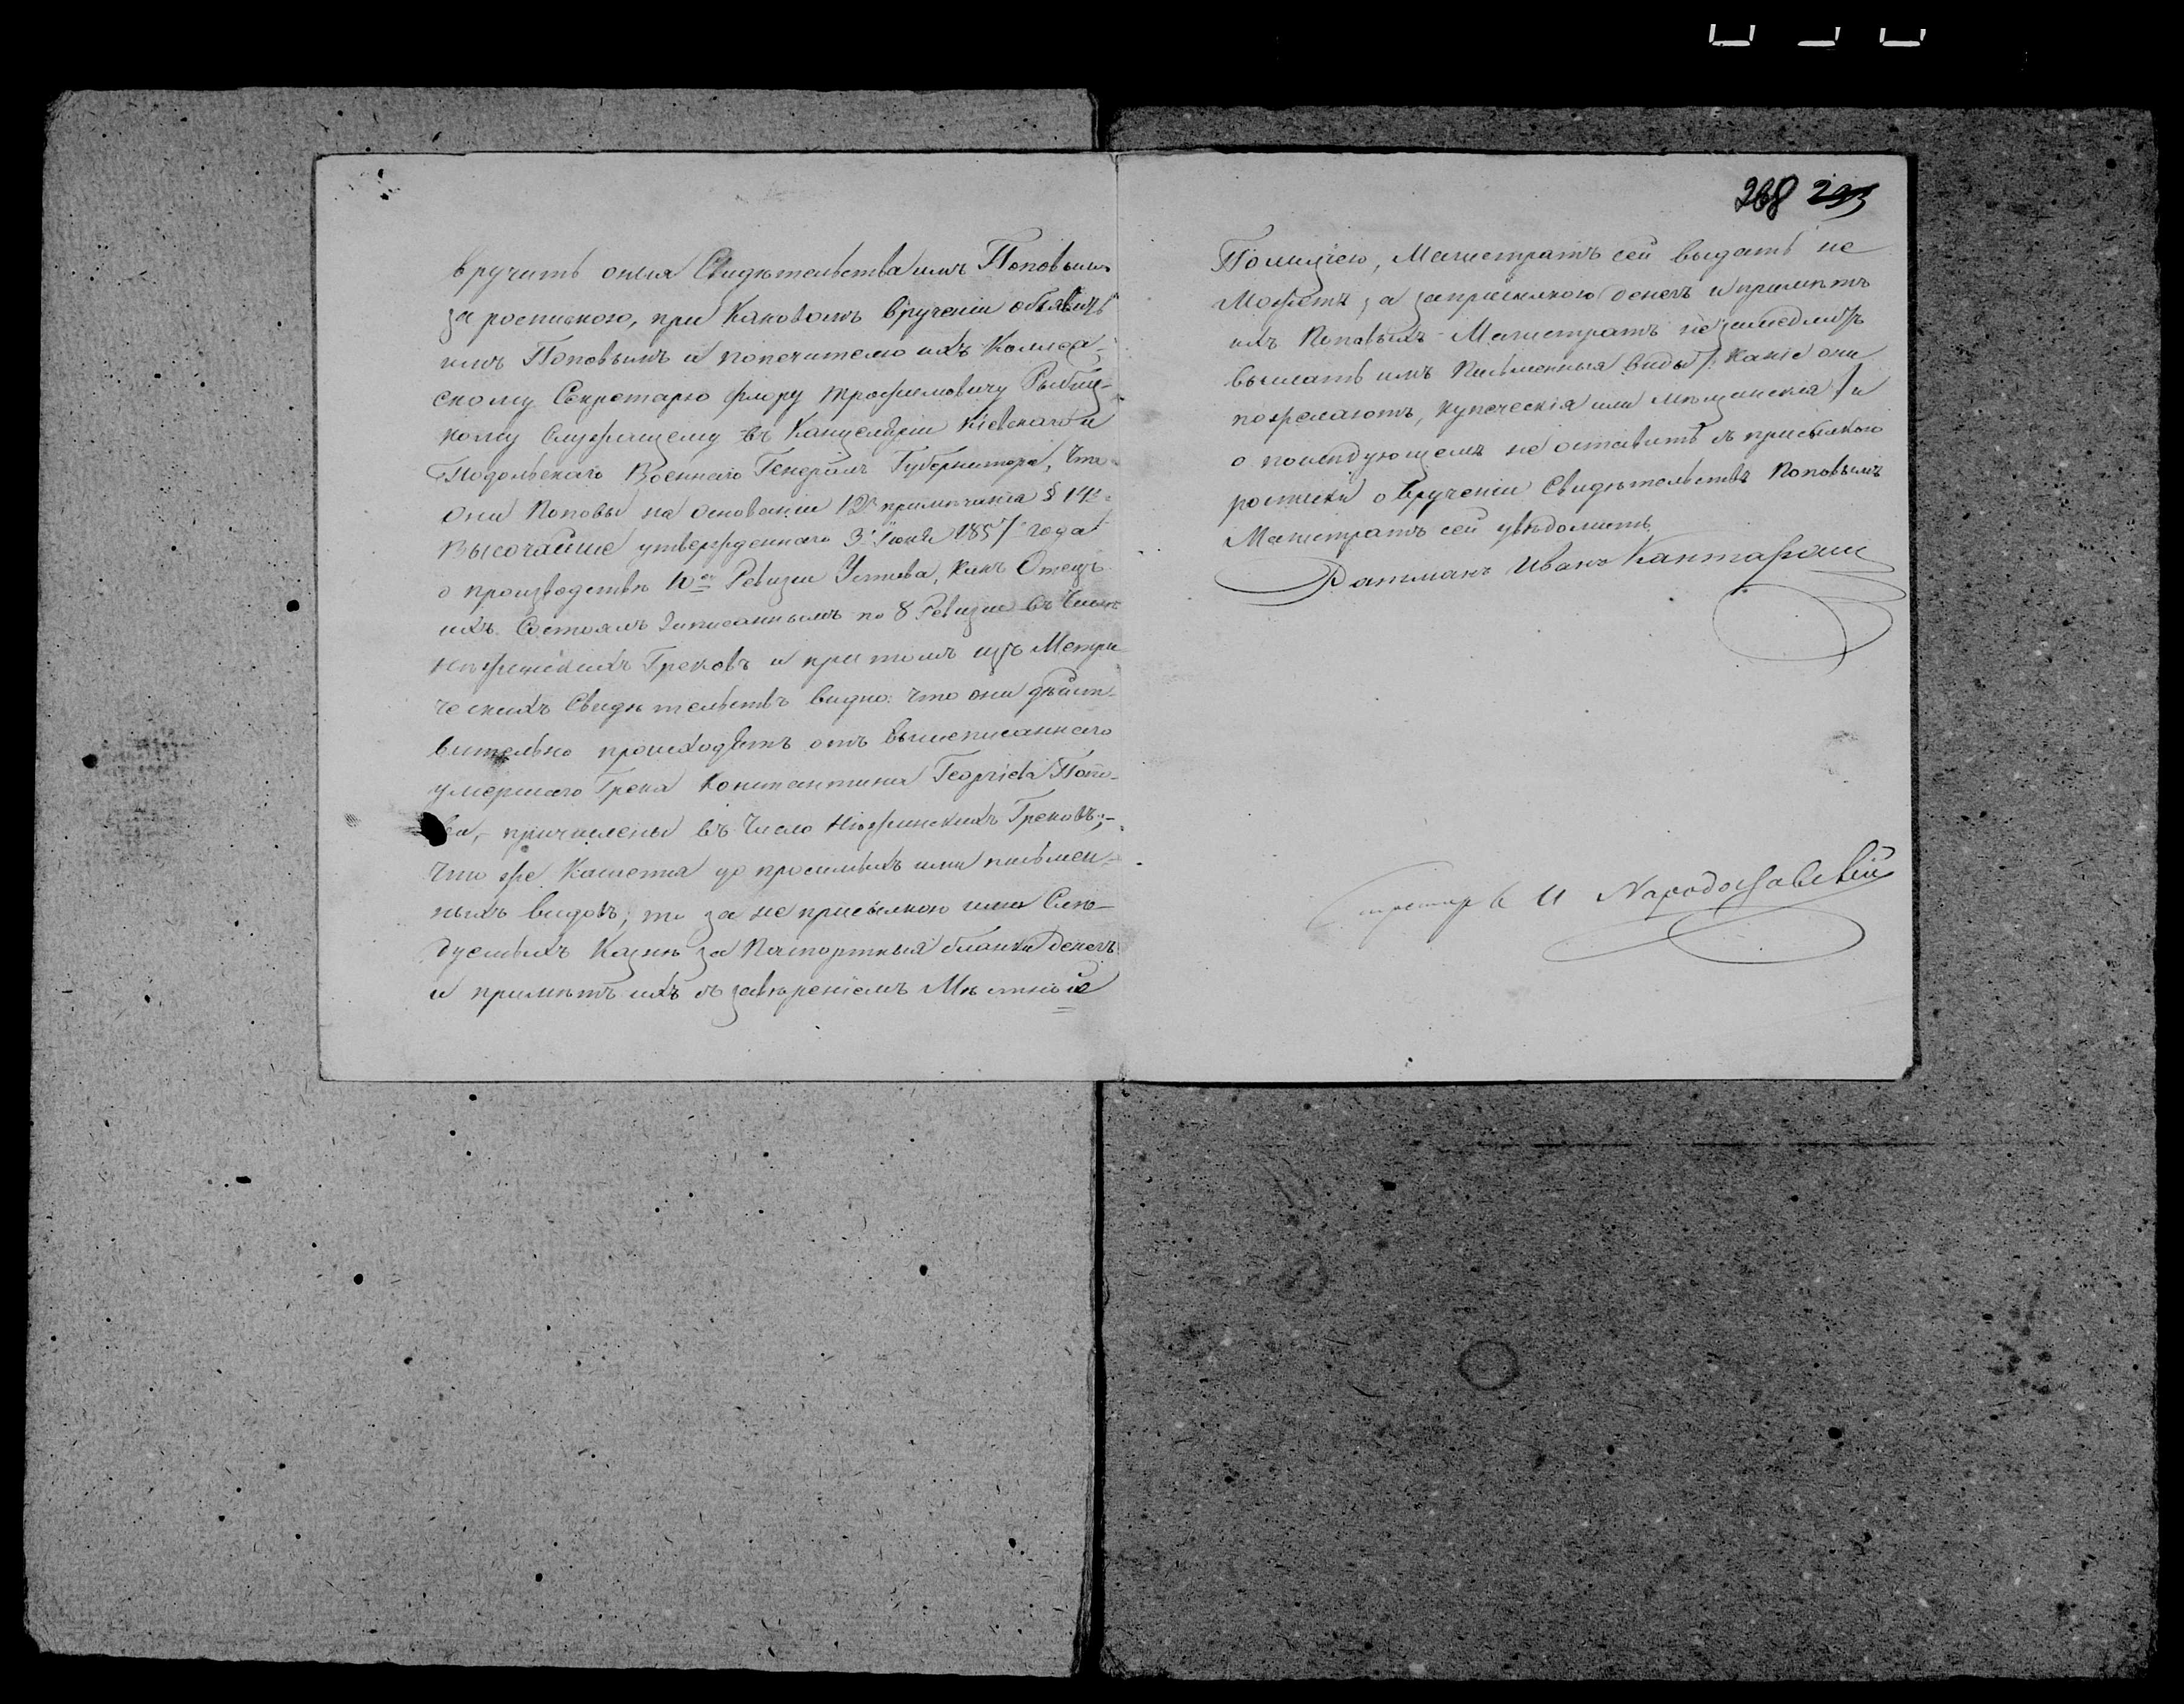 вручить оныя Свидѣтельства имъ Поповымъ
за роспискою, при каковомъ врученіи объявить
имъ Поповымъ и попечителю ихъ Коллеж-
скому Секретарю Флору Трофимовичу
кому служащему въ Канцеляріи Кіевскаго и
Подольскаго Военнаго Генералъ Губернатора, что
они Поповы на основаніи 12 примѣчанія §
Высочайше утвержденнаго 3 Іюня 1857 года
о производствѣ 10й Ревизіи Устава, какъ Отецъ
ихъ Состоялъ записаннымъ по 8 Ревизіи въ числѣ
Нѣжинскихъ Грековъ и при томъ изъ Метри-
ческихъ Свидѣтельствъ видно: что они дѣйст-
вительно происходятъ отъ вышеписаннаго
умершаго Грека Константина Георгіева Попо-
ва, причислены въ число Нѣжинскихъ Грековъ;-
Что же Касается до просимыхъ ими письмен-
ныхъ видовъ, то за не присылкою ими Слѣ-
дуемыхъ Казнѣ за Паспортныя бланки денегъ
и примѣтъ ихъ съ завѣреніемъ Мѣстной
268 293
Полиціею, Магистратъ сей выдать не
Можетъ, а за присылкою денегъ и примѣтъ
ихъ Поповыхъ Магистратъ незамедлитъ
выслать имъ Письменныя виды /: какіе они
пожелаютъ, купеческія или мѣщанскія :/ и
о послѣдующемъ не оставить съ присылкою
росписки о врученіи Свидѣтельствъ Поповымъ
Магистратъ сей увѣдомить.
Ратманъ Иванъ
Секретарь И